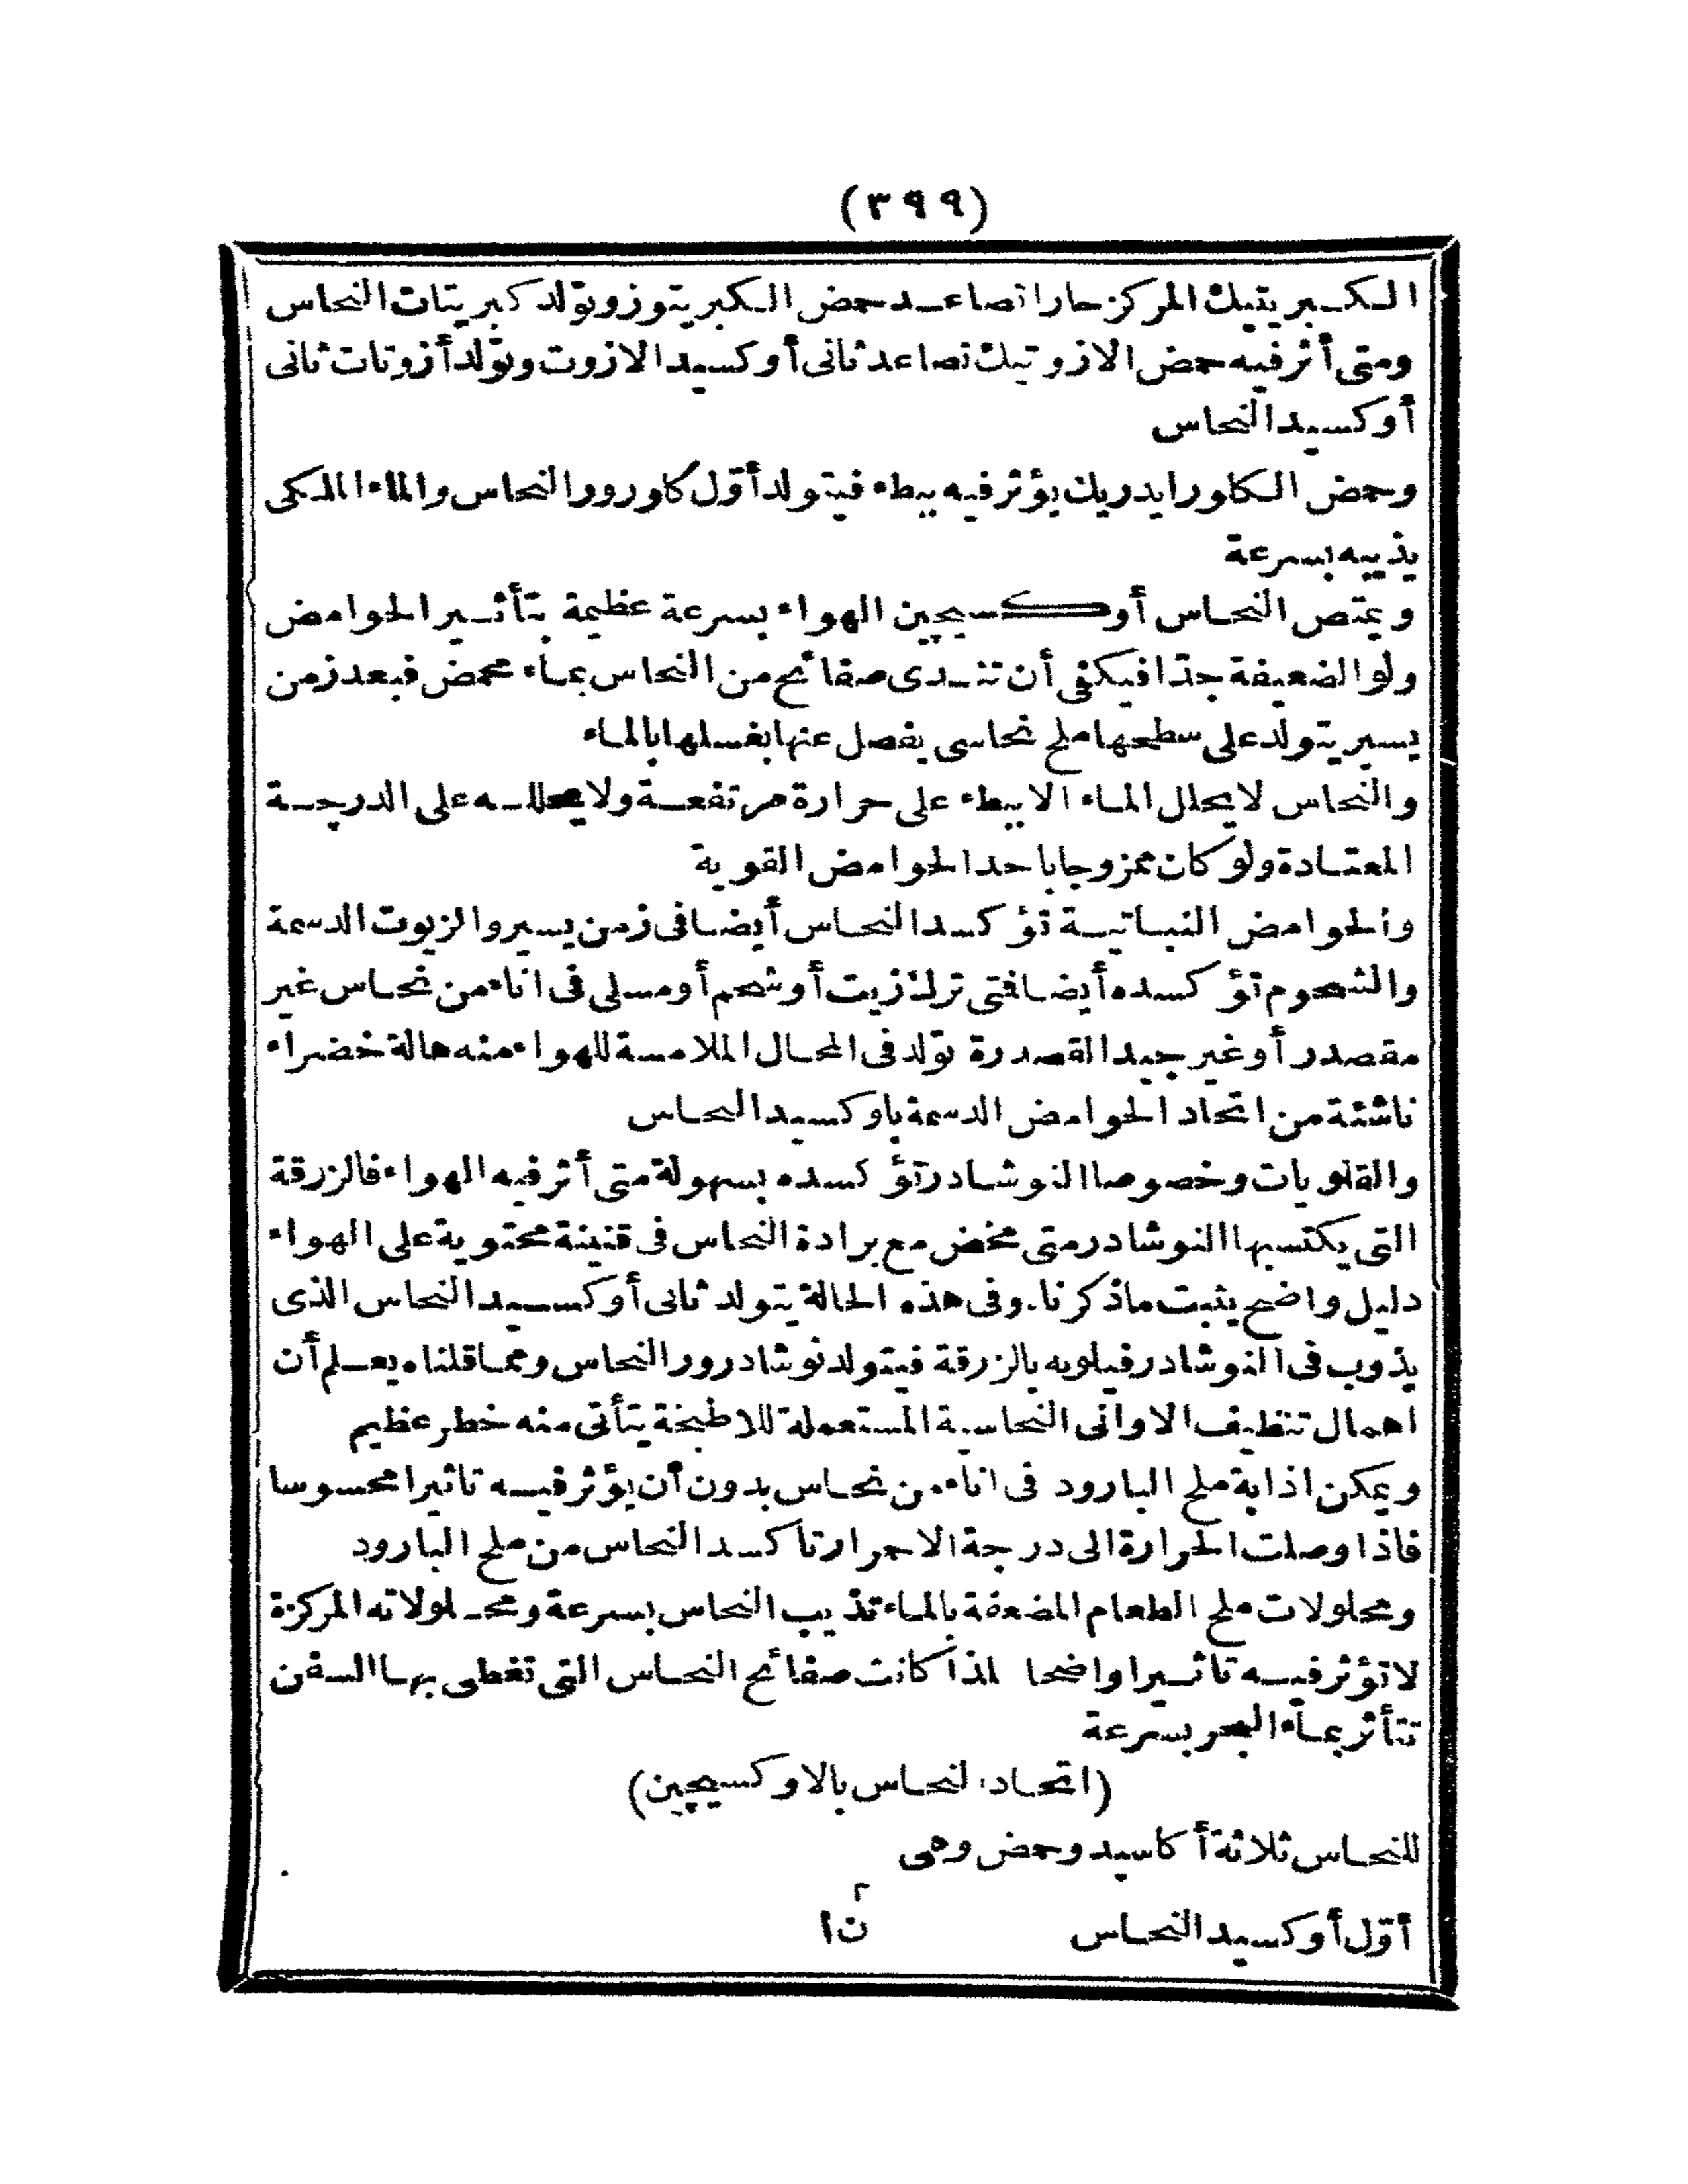 (٣٩٩)
الكبريتيك المركز حارا تصاعد حمض الكبريتوز وتولد كبريتات النحاس
ومتى أثر فيه حمض الازوتيك تصاعد ثانى أوكسيد الازوت وتولد أزوتات ثانى
أوكسيد النحاس
وحمض الكلورايدريك يؤثر فيه ببطء فيتولد أول كلورور النحاس والماء الملكى
يذيبه بسرعة
ويمتص النحاس أوكسيچين الهواء بسرعة عظيمة بتأثير الحوامض
ولو الضعيفة جدا فيكفى أن تندى صفائح من النحاس بماء محمض فبعد زمن
يسير يتولد على سطحها ملح نحاسى يفصل عنها بغسلها بالماء
والنحاس لا يحلل الماء الا ببطء على حرارة مرتفعة ولا يحلله على الدرجة
المعتادة ولو كان ممزوجا باحد الحوامض القوية
والحوامض النباتية تؤكسد النحاس أيضا فى زمن يسير والزيوت الدسمة
والشحوم تؤكسده أيضا فتى ترك زيت أو شحم أو مسلى فى اناء من نحاس غير
مقصدر أو غير جيد القصدرة تولد فى المحال الملامسة للهواء منه هالة خضراء
ناشئة من اتحاد الحوامض الدسمة باوكسيد النحاس
والقلويات وخصوصا النوشادر تؤكسده بسهولة متى أثر فيه الهواء فالزرقة
التى يكتسبها النوشادر متى مخض مع برادة النحاس فى قنينة محتوية على الهواء
دليل واضح يثبت ما ذكرنا. وفى هذه الحالة يتولد ثانى أوكسيد النحاس الذى
يذوب فى النوشادر فيلونه بالزرقة فيتولد نوشادرور النحاس ومما قلناه يعلم أن
اهمال تنظيف الاوانى النحاسية المستعملة للاطبخة يتأتى منه خطر عظيم
ويمكن اذابة ملح البارود فى اناء من نحاس بدون أن يؤثر فيه تاثيرا محسوسا
فاذا وصلت الحرارة الى درجة الاحمرار تاكسد النحاس من ملح البارود
ومحلولات ملح الطعام المضعفة بالماء تذيب النحاس بسرعة ومحلولاته المركزة
لا تؤثر فيه تاثيرا واضحا لذا كانت صفائح النحاس التى تغطى بها السفن
تتأثر بماء البحر بسرعة
(اتحاد النحاس بالاوكسيچين)
للنحاس ثلاثة أكاسيد وحمض وهى
أول أوكسيد النحاس ن٢ا